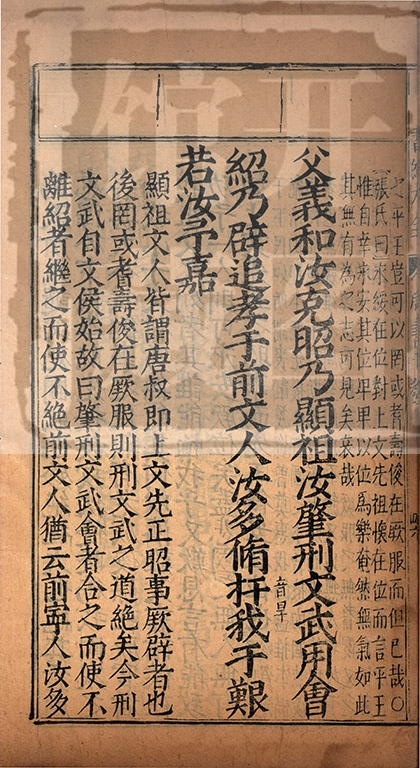 之平王豈可以罔或耆壽俊在厥服而但已哉○
張氏曰永綏在位對上文先祖懷在位而言平王
惟自幸永安其位卑卑以位為樂奄然無氣如此
其無有為之志可見矣哀哉
父義和汝克昭乃顯祖汝肇刑文武用會
紹乃辟追孝于前文人汝多脩扞音旱我于艱
若汝予嘉
顯祖文人皆謂唐叔即上文先正昭事厥辟者也
後罔或耆壽俊在厥服則刑文武之道絶矣今刑
文武自文侯始故曰肇刑文武會者合之而使不
離紹者繼之而使不絶前文人猶云前寧人汝多